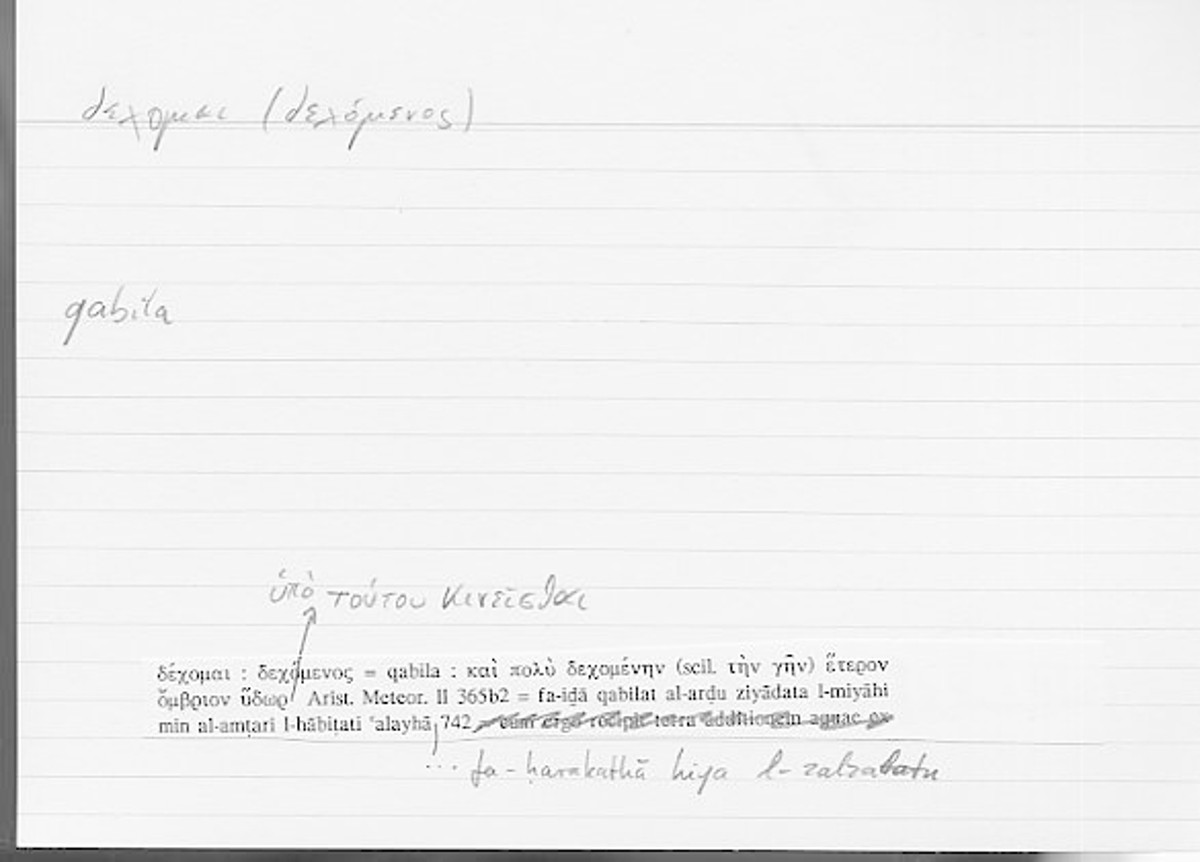 δεχομαι (δεχόμενος)
qabila
ὑπὸ τούτου κινεῖσθαι
δέχομαι : δεχόμενος = qabila : καὶ πολὺ δεχομένην (scil. τὴν γῆν) ἕτερον
ὄμβριον ὕδωρ Arist. Meteor. II 365b2 = fa-iḏā qabilat al-arḍu ziyādata l-miyāhi
min al-amṭari l-hābiṭati ʿalayhā 742 = cum ergo recipit terra additionem aquae ex
... fa-ḥarakathā hiya l-zalzalatu